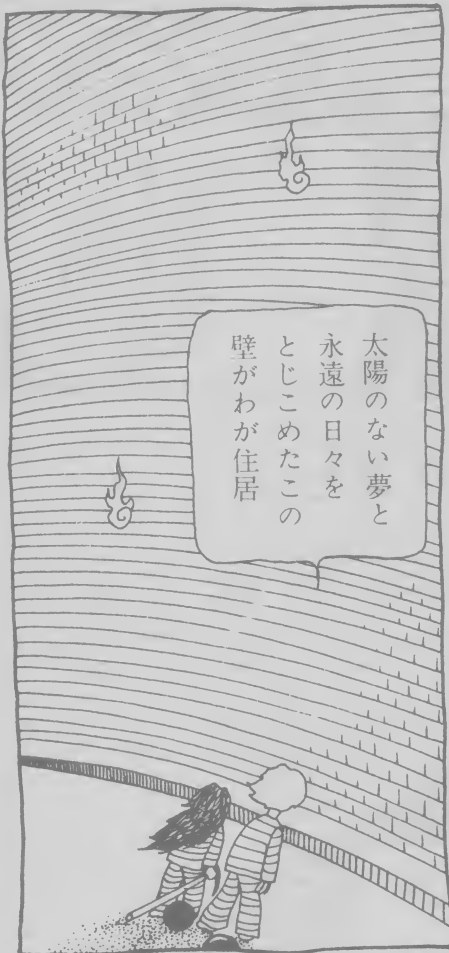 太陽のない夢と
永遠の日々を
とじこめたこの
壁がわが住居